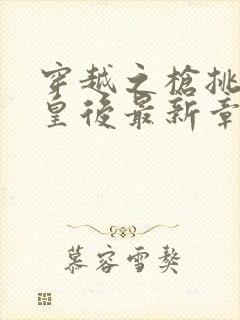 穿越之槍挑
皇後最新章
慕容雪獒